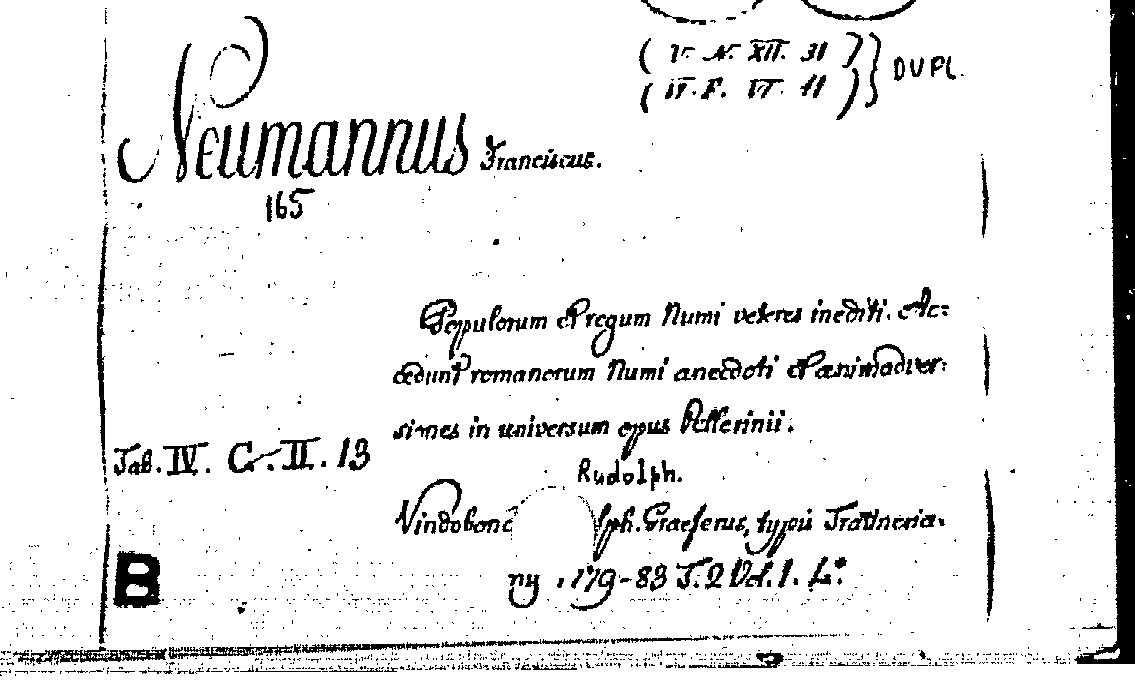 ( V. N. XII. 31 ) } DUPL.
( IV. F. VI. 11 )
Neumannus Franciscus.
165
Populorum et regum Numi veteres inediti. Ac=
cedunt romanorum Numi anecdoti et animadver=
siones in universum opus Pellerinii.
Tab. IV. C. II. 13
Rudolph.
Vindobonæ lph. Graeferus, typis Trattneria=
nis. 1779-83 T. 2 Vol. 1. 4.º
B